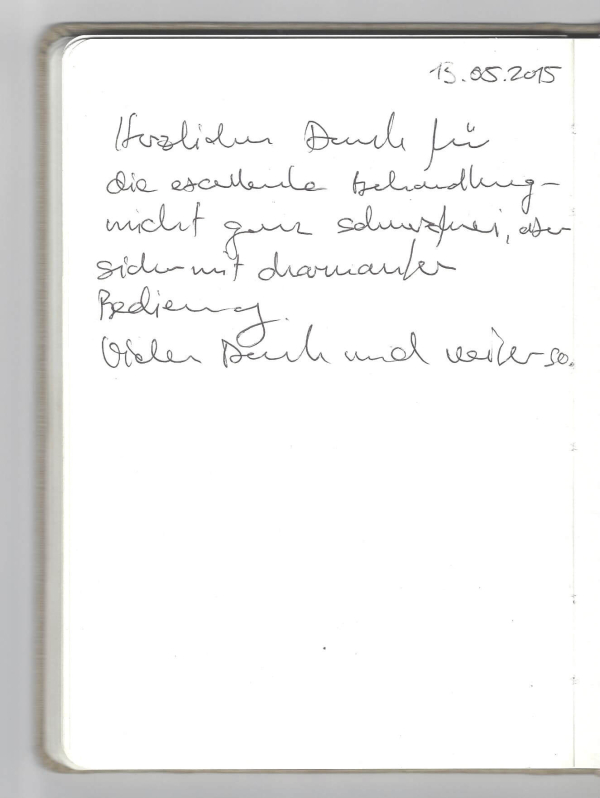 13.05.2015
Herzlichen Dank für
die excellente Behandlung -
nicht ganz schmerzfrei, aber
sicher mit charmanter
Bedienung.
Vielen Dank und weiter so.